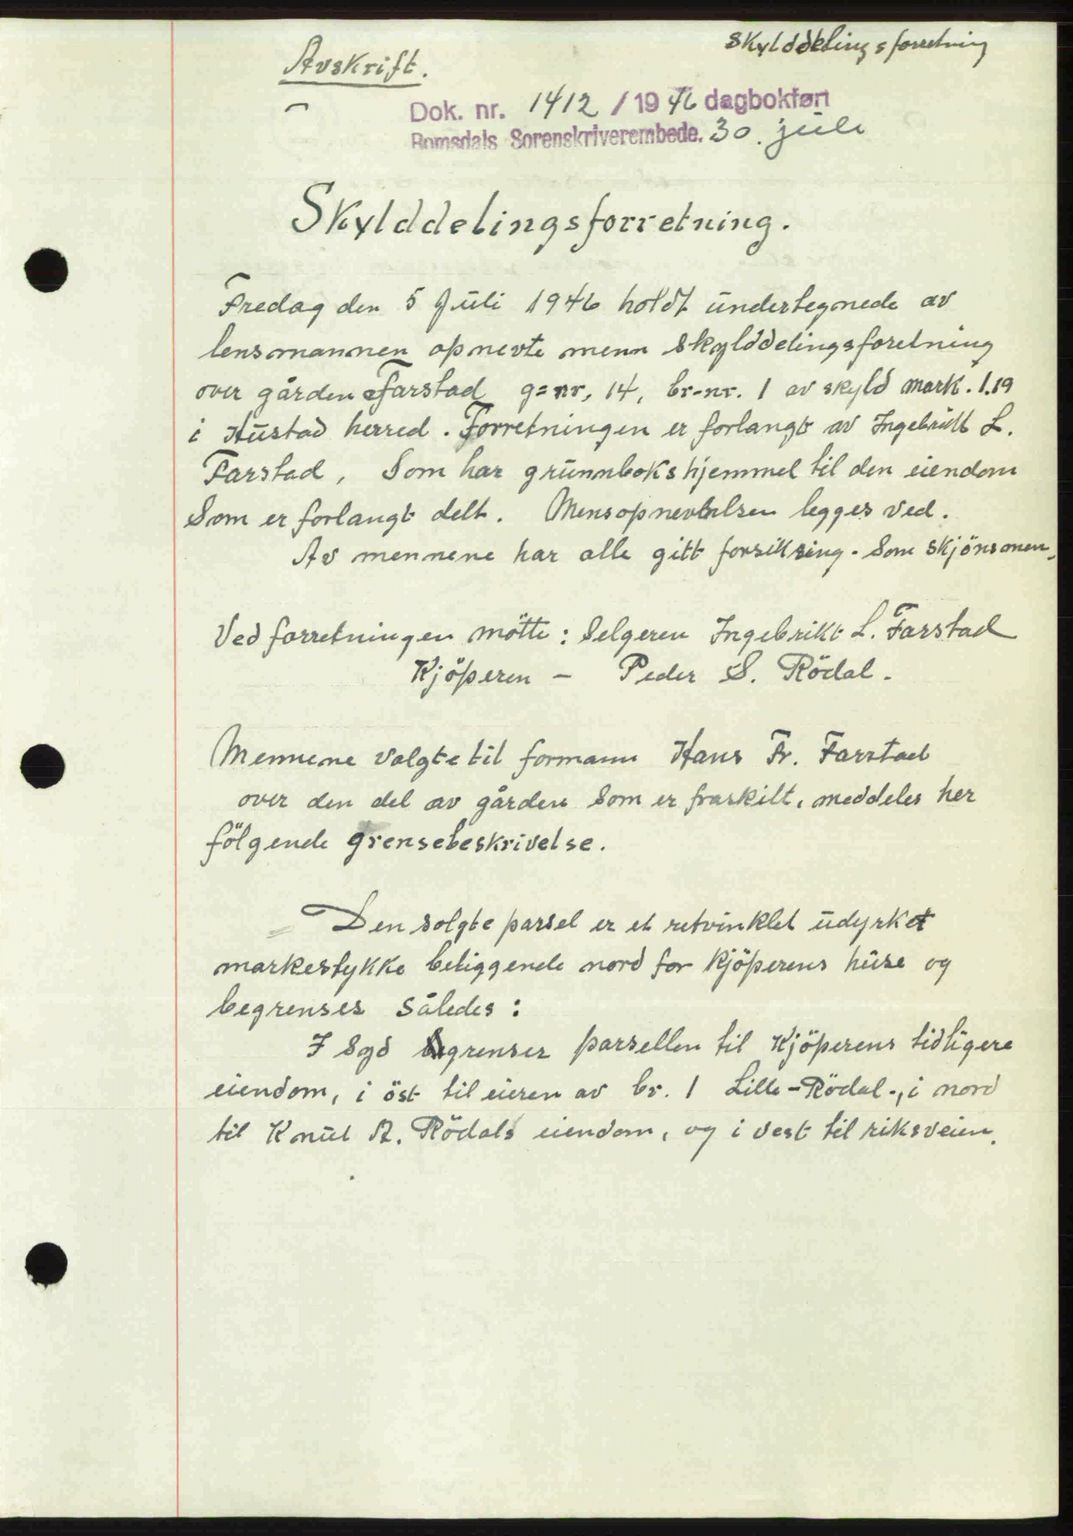 Skylddelingsforretning
Avskrift.
Dok. nr. 1412 / 1946 dagbokført
Romsdals Sorenskriverembede. 30. juli
Skylddelingsforretning.
Fredag den 5 Juli 1946 holdt undertegnede av
lensmannen opnevte menn Skylddelingsforetning
over gården Farstad g=nr, 14, br-nr. 1 av skyld mark. 1.19
i Hustad herred. Forretningen er forlangt av Ingebrikt L.
Farstad, Som har grunnbokshjemmel til den eiendom
Som er forlangt delt. Mensopnevnelsen legges ved.
Av mennene har alle gitt forsikring. Som skjönsmen.
Ved forretningen mötte: Selgeren Ingebrikt L. Farstad
Kjöperen - Peder S. Rödal.
Mennene valgte til formann Hans Fr. Farstad
over den del av gården Som er fraskilt, meddeles her
fölgende grensebeskrivelse.
Den solgte parsel er et retvinklet udyrket
markestykke beliggende nord for kjöperens huse og
begrenses således:
I Syd begrenser parsellen til Kjöperens tidligere
eiendom, i öst til eieren av br. 1 Lille-Rödal-, i nord
til Knut A. Rödals eiendom, og i vest til riksveien.